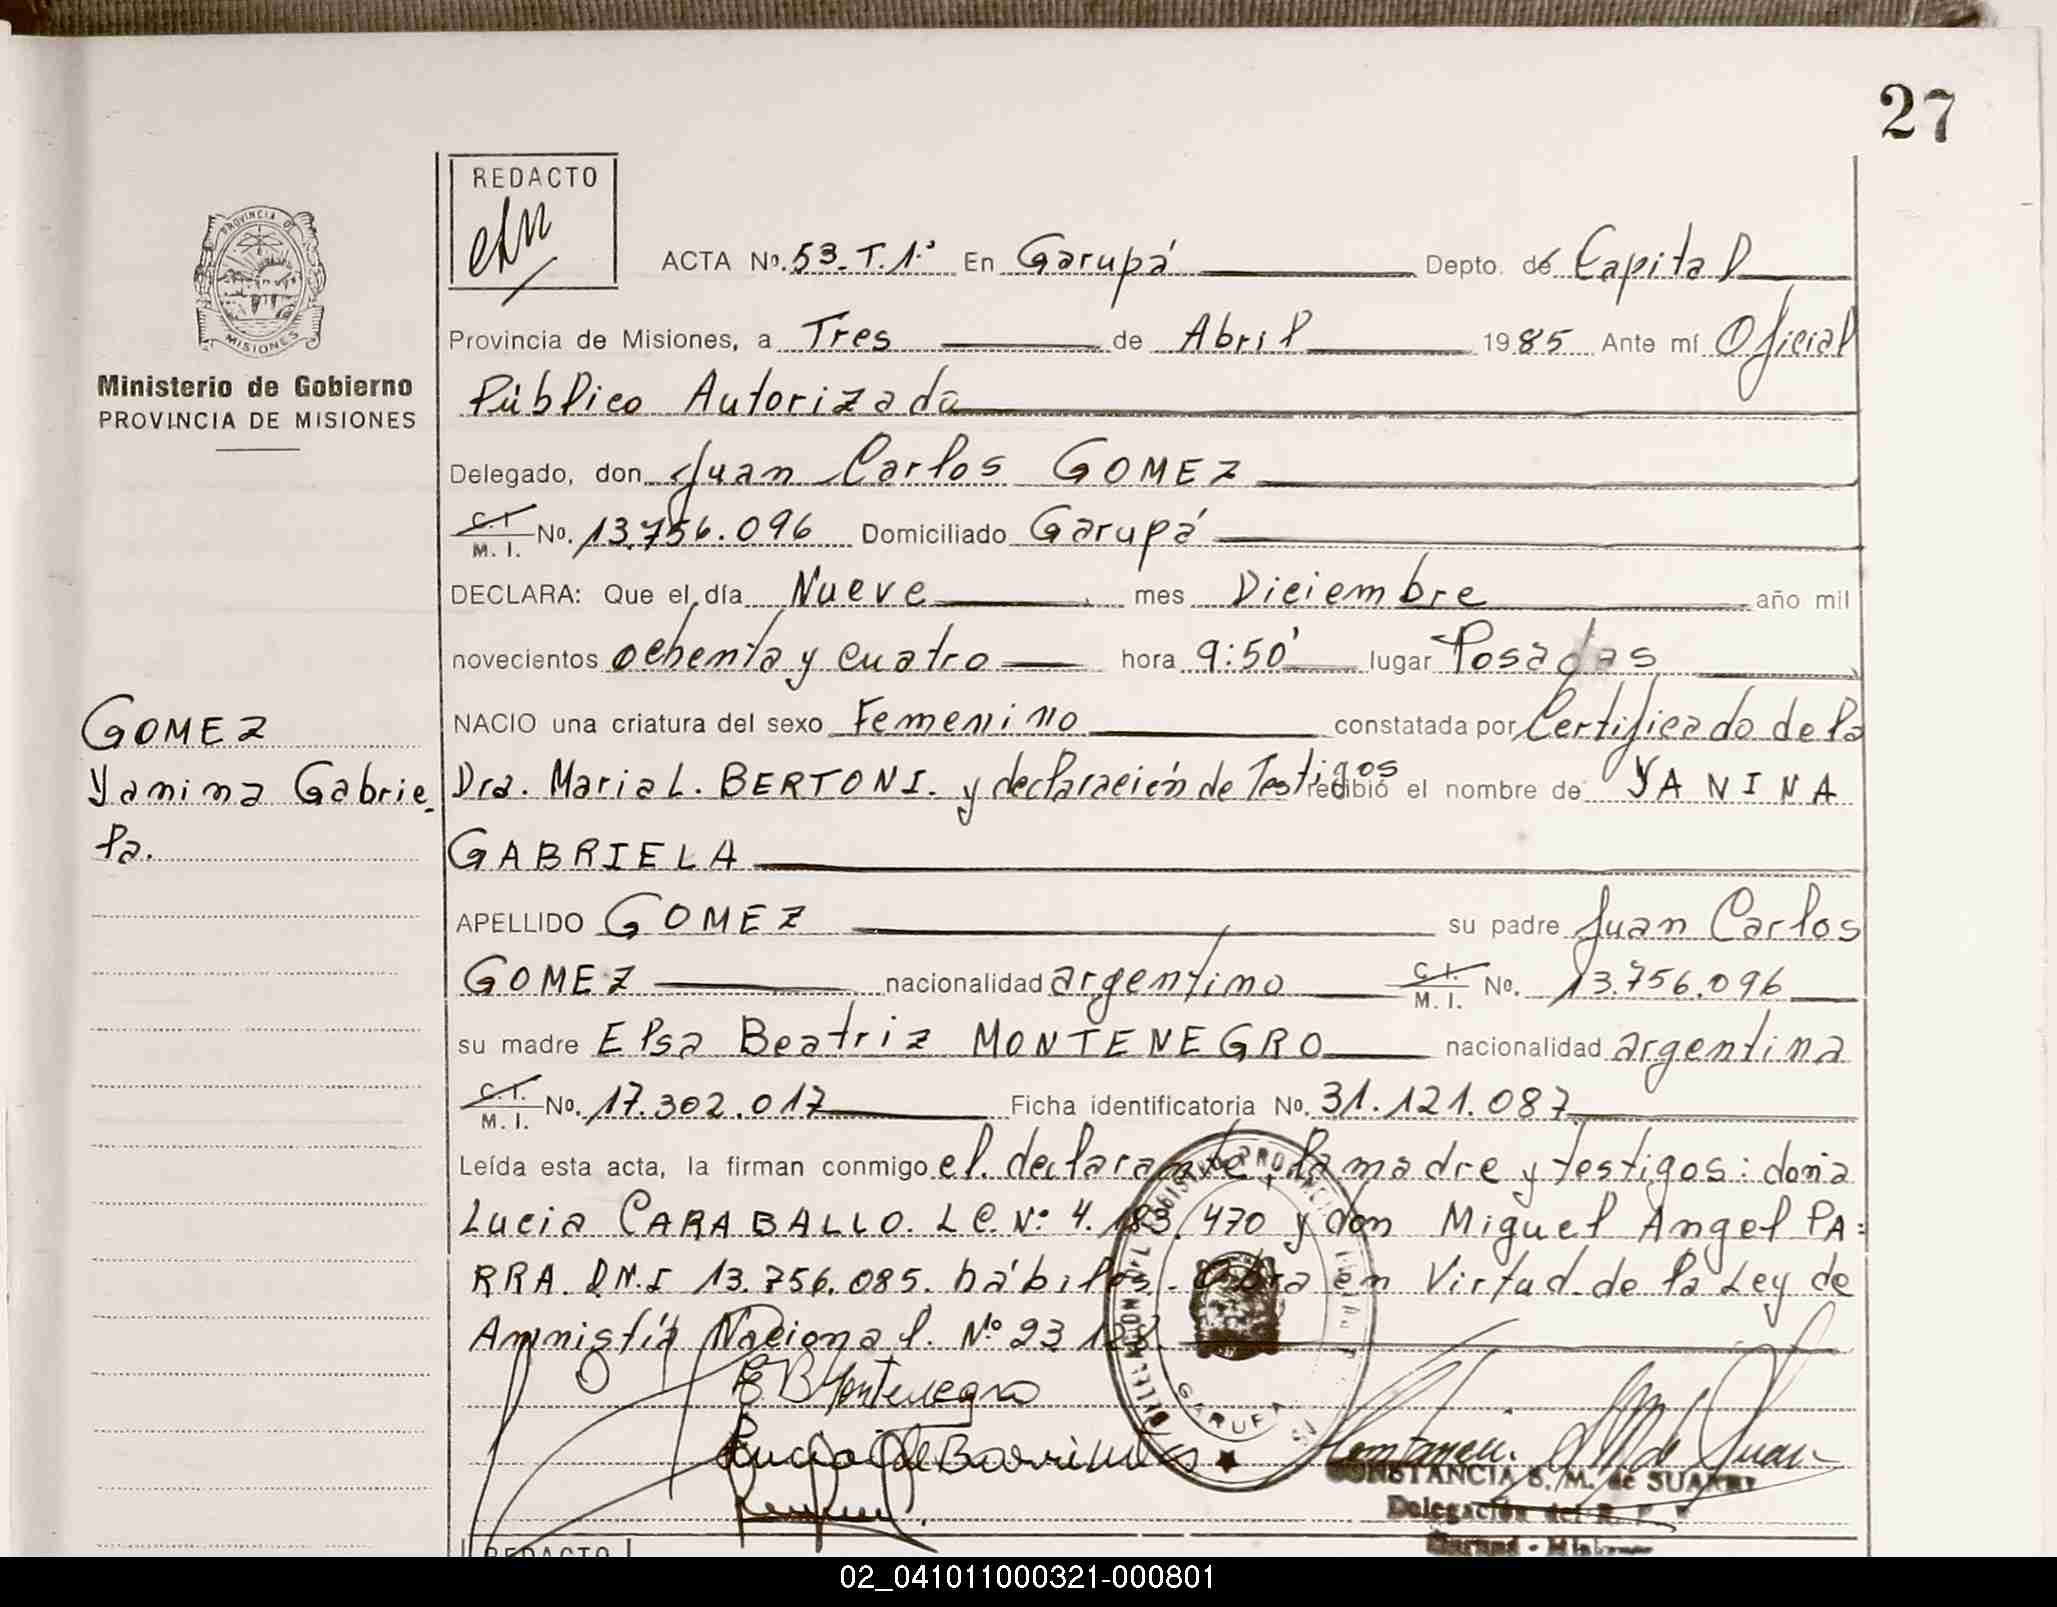 27
REDACTO
PROVINCIA DE
MISIONES
Ministerio de Gobierno
PROVINCIA DE MISIONES
ACTA Nº. 53. T. 1º En Garupá Depto. de Capital
Provincia de Misiones, a Tres de Abril 1985 Ante mí Oficial
Público Autorizada
Delegado, don Juan Carlos GOMEZ
C. I. M. I. Nº. 13.756.096 Domiciliado Garupá
DECLARA: Que el día Nueve mes Diciembre año mil
novecientos ochenta y cuatro hora 9:50' lugar Posadas
NACIO una criatura del sexo Femenino constatada por Certificado de la
Dra. Maria L. BERTONI. y declaración de Testigos recibió el nombre de YANINA
GABRIELA
GOMEZ
Yanina Gabrie-
la.
APELLIDO GOMEZ su padre Juan Carlos
GOMEZ nacionalidad argentino C. I. M. I. Nº. 13.756.096
su madre Elsa Beatriz MONTENEGRO nacionalidad argentina
C. I. M. I. Nº. 17.302.017 Ficha identificatoria Nº. 31.121.087
Leída esta acta, la firman conmigo el declarante, la madre y testigos: doña
Lucia CARABALLO. L C. Nº 4.183.470 y don Miguel Angel PA=
RRA. D.N.I 13.756.085. hábiles. Obra en Virtud de la Ley de
Amnistía Nacional. Nº 23.128.
E B Montenegro
GARUPA
CONSTANCIA S. M. de SUAREZ
Delegación del R. P.
Garupá - Misiones
REDACTO
02_041011000321-000801